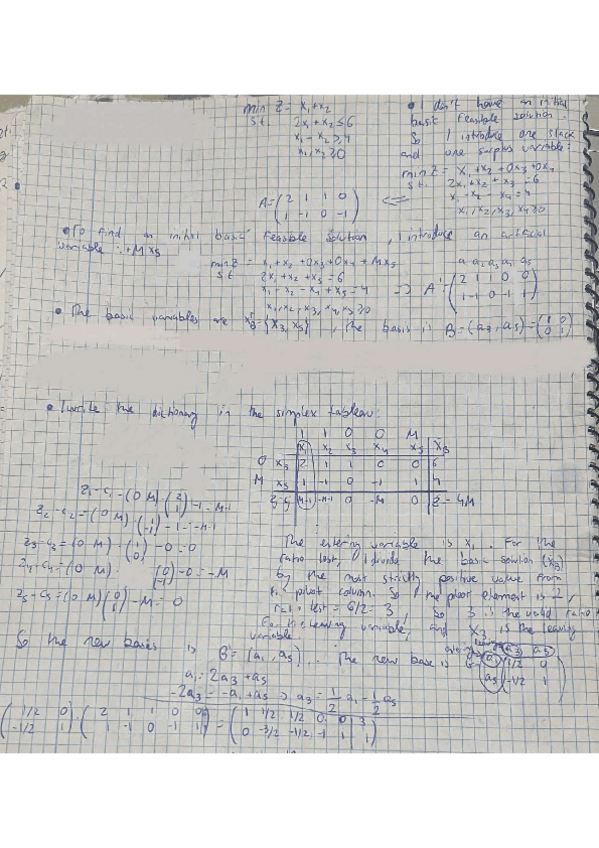 min Z = x₁+x₂
s.t. 2x₁+x₂ ≤ 6
x₁-x₂ ≥ 4
x₁,x₂ ≥ 0
• I don't have an initial
basic feasible solution.
So I introduce one slack
and one surplus variable:
min Z = x₁+x₂+0x₃+0x₄
s.t. 2x₁+x₂+x₃ = 6
x₁-x₂-x₄ = 4
x₁,x₂,x₃,x₄ ≥ 0
A = (2 1 1 0
1 -1 0 -1) ⇐
• To find an initial basic feasible solution, I introduce an artificial
variable: +Mx₅
min Z = x₁+x₂+0x₃+0x₄+Mx₅
s.t. 2x₁+x₂+x₃ = 6
x₁-x₂-x₄+x₅ = 4
x₁,x₂,x₃,x₄,x₅ ≥ 0
a₁ a₂ a₃ a₄ a₅
⇒ A' = (2 1 1 0 0
1 -1 0 -1 1)
• The basic variables are = {x₃, x₅}, the basis is B = (a₃, a₅) = (1 0
0 1)
• I write the dictionary in the simplex tableau:
1 1 0 0 M
x₁ x₂ x₃ x₄ x₅
0 x₃ 2 1 1 0 0 6
M x₅ 1 -1 0 -1 1 4
M-1 -M-1 0 -M 0 4M
z₁-c₁ = (0 M) · (2
1) - 1 = M-1
z₂-c₂ = (0 M) · (1
-1) - 1 = -M-1
z₃-c₃ = (0 M) · (1
0) - 0 = 0
z₄-c₄ = (0 M) · (0
-1) - 0 = -M
z₅-c₅ = (0 M) (0
1) - M = 0
The entering variable is x₁. For the
ratio test, I divide the basic solution
by the most strictly positive value from
pivot column. So the pivot element is 2,
ratio test = 6/2 = 3, so 3 is the valid ratio
leaving variable, and x₃ is the leaving
variable.
So the new bases is B = {a₁, a₅}. The new base is
a₃ a₅
a₁ 1/2 0
a₅ -1/2 1
a₁ = 2a₃+a₅
-2a₃ = -a₁+a₅ ⇒ a₃ = 1/2 a₁ - 1/2 a₅
(1/2 0
-1/2 1) · (2 1 1 0 0
1 -1 0 -1 1) = (1 1/2 1/2 0 0 3
0 -3/2 -1/2 -1 1 1)